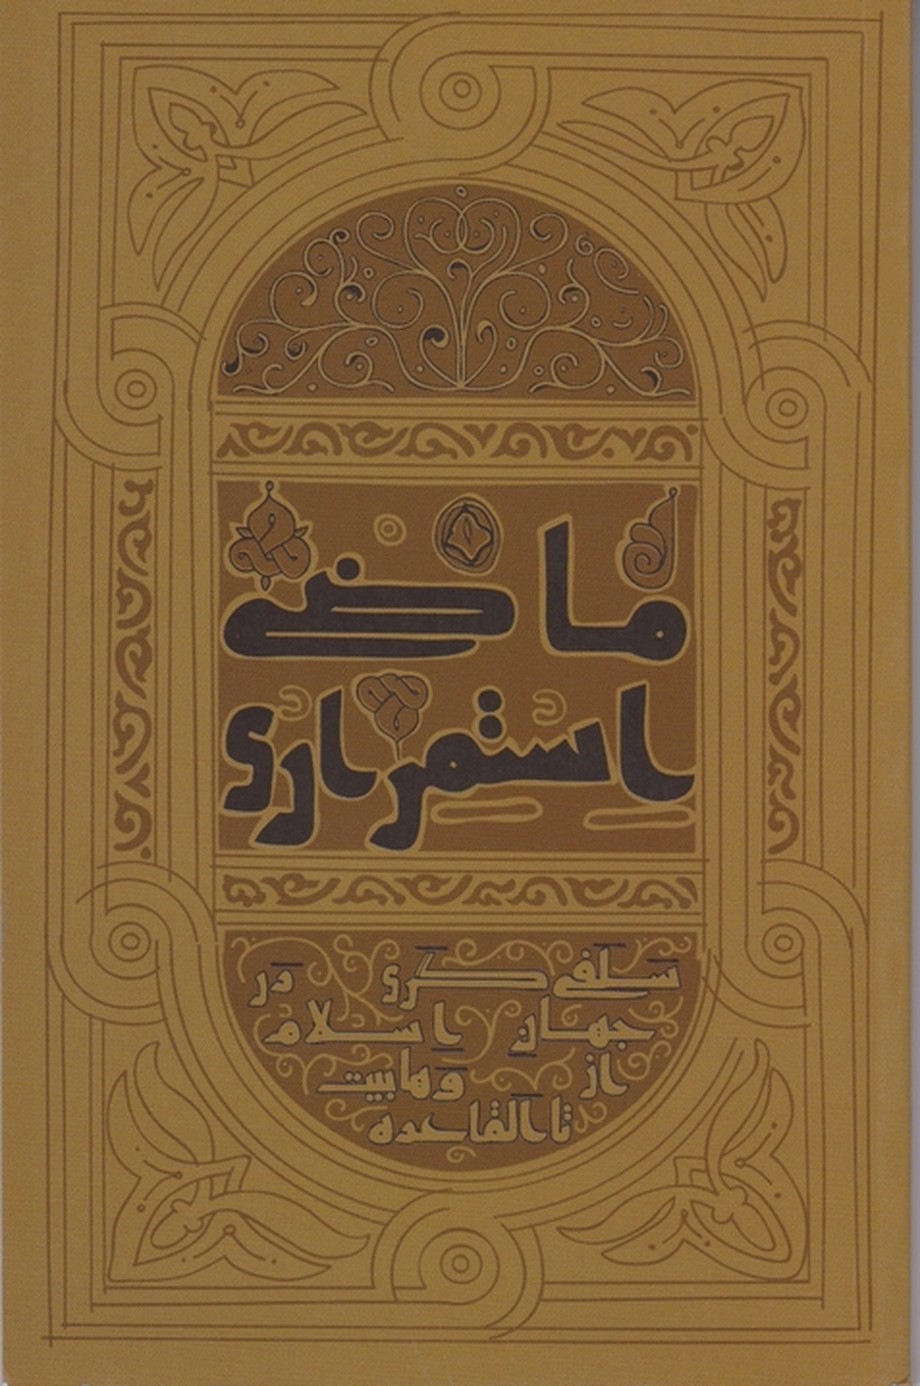 ماضی
استمراری
سلفی گری در
جهان اسلام
از وهابیت
تا القاعده